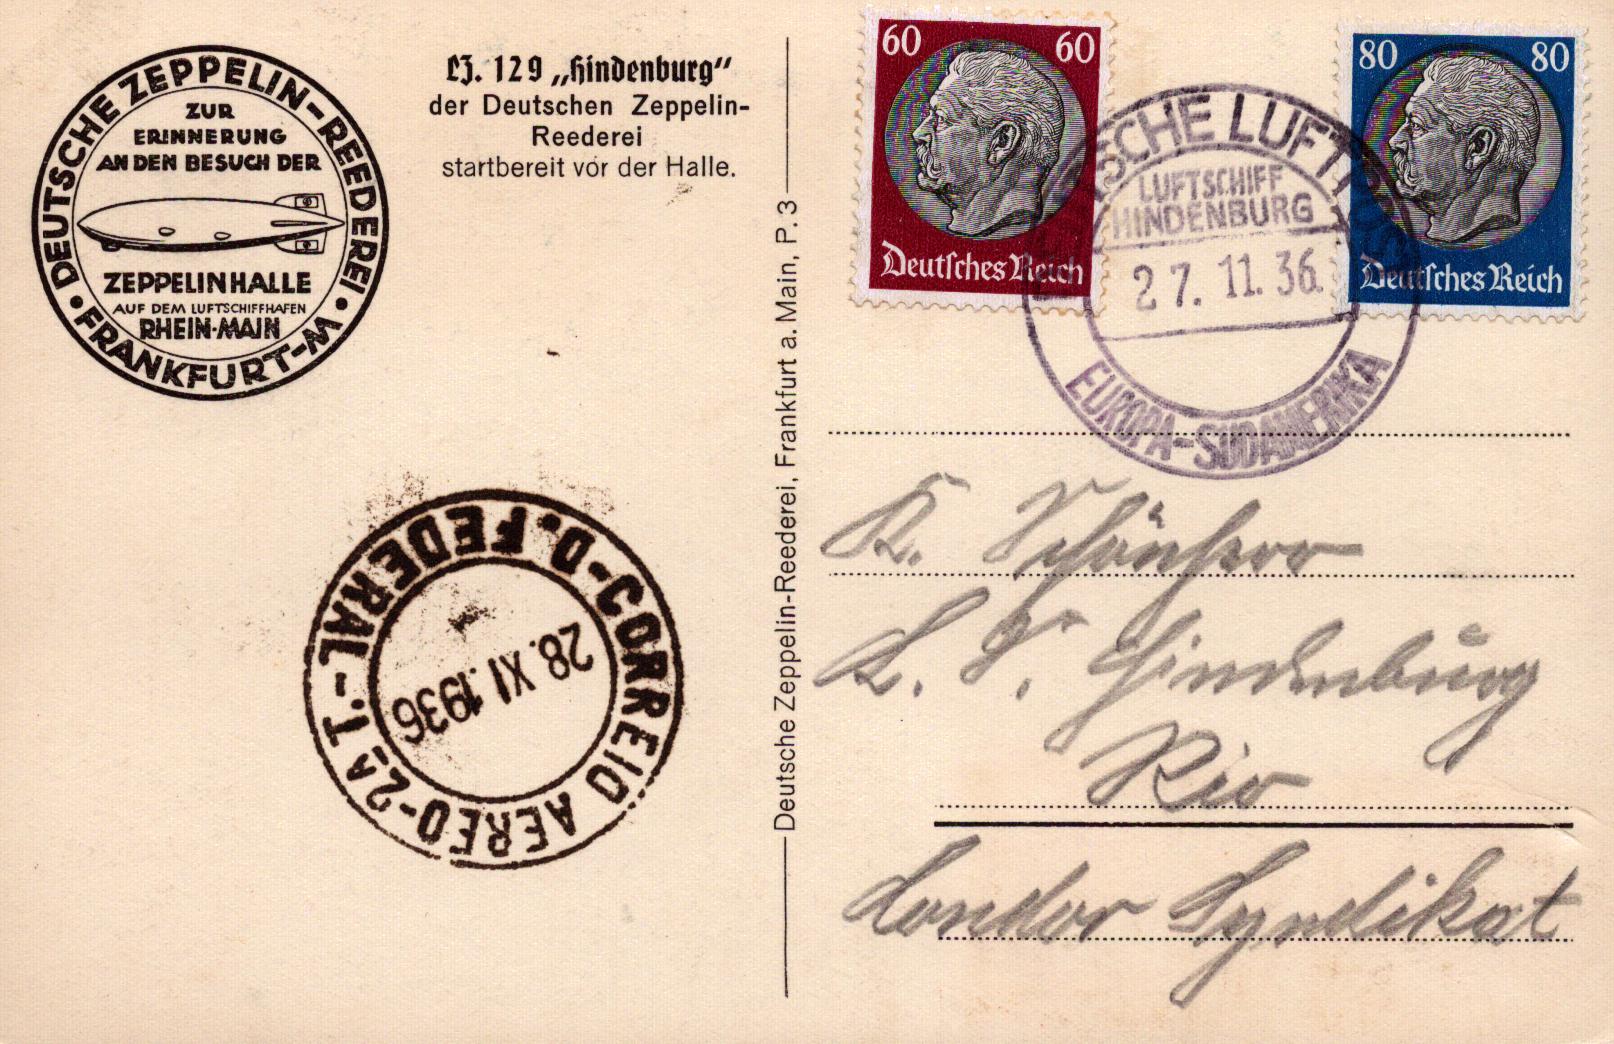 DEUTSCHE ZEPPELIN-REEDEREI
• FRANKFURT-M •
ZUR
ERINNERUNG
AN DEN BESUCH DER
ZEPPELINHALLE
AUF DEM LUFTSCHIFFHAFEN
RHEIN-MAIN
LZ. 129 „Hindenburg“
der Deutschen Zeppelin-
Reederei
startbereit vor der Halle.
D. FEDERAL - CORREIO AEREO - 2A T. -
28. XI. 1936
Deutsche Zeppelin-Reederei, Frankfurt a. Main, P. 3
60 60
Deutsches Reich
80 80
Deutsches Reich
DEUTSCHE LUFTPOST
LUFTSCHIFF
HINDENBURG
27. 11. 36.
EUROPA-SÜDAMERIKA
K.
L. S. Hindenburg
Rio
Condor Syndikat